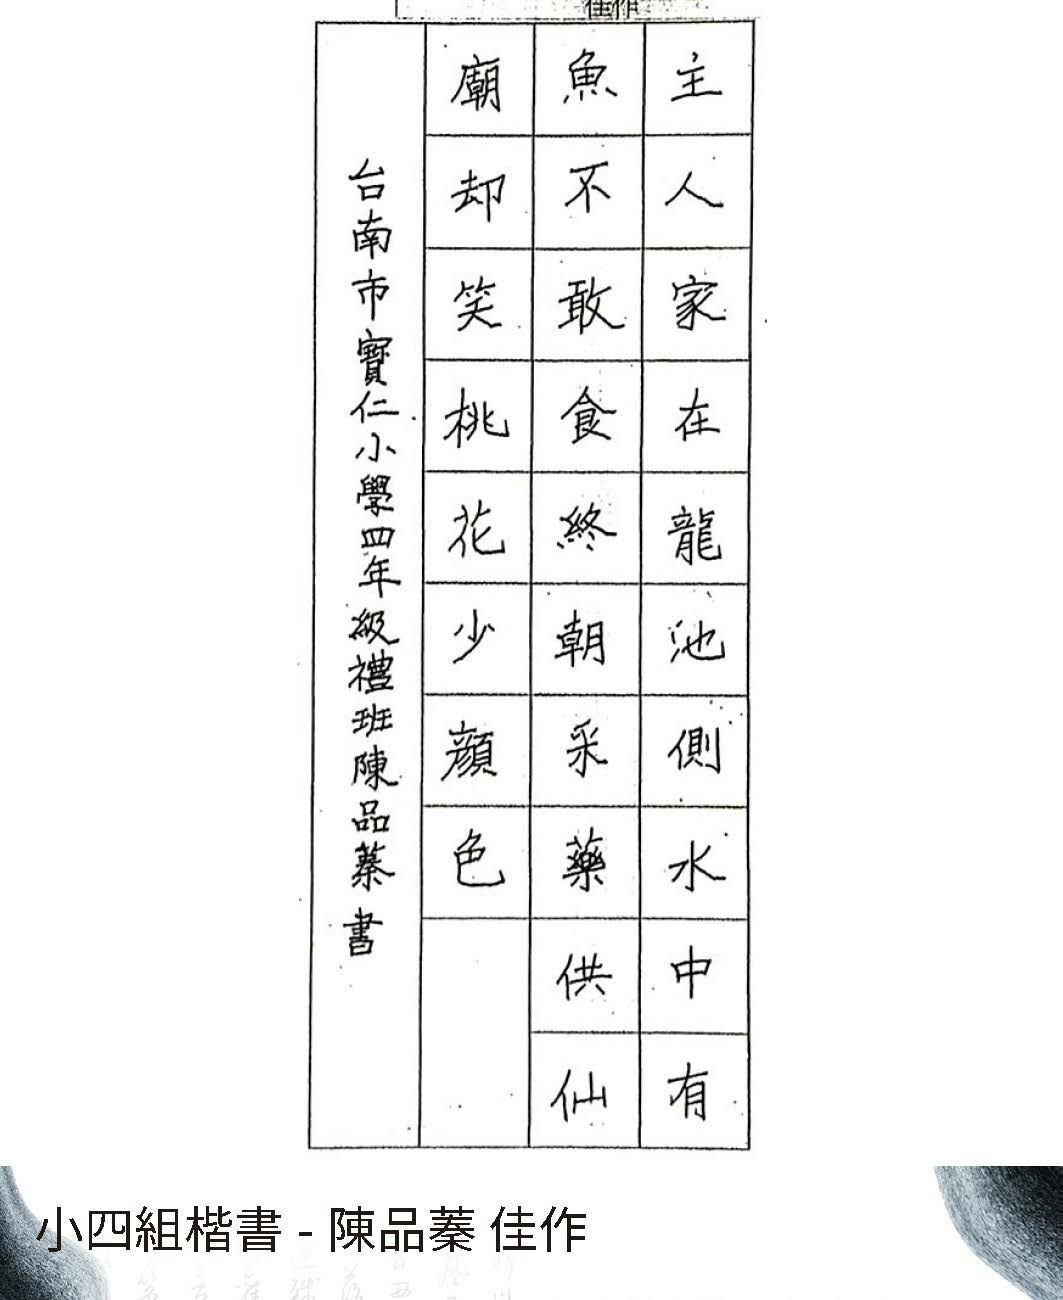 佳作
主人家在龍池側水中有
魚不敢食終朝采藥供仙
廟却笑桃花少顏色
台南市寶仁小學四年級禮班陳品蓁書
小四組楷書 - 陳品蓁 佳作